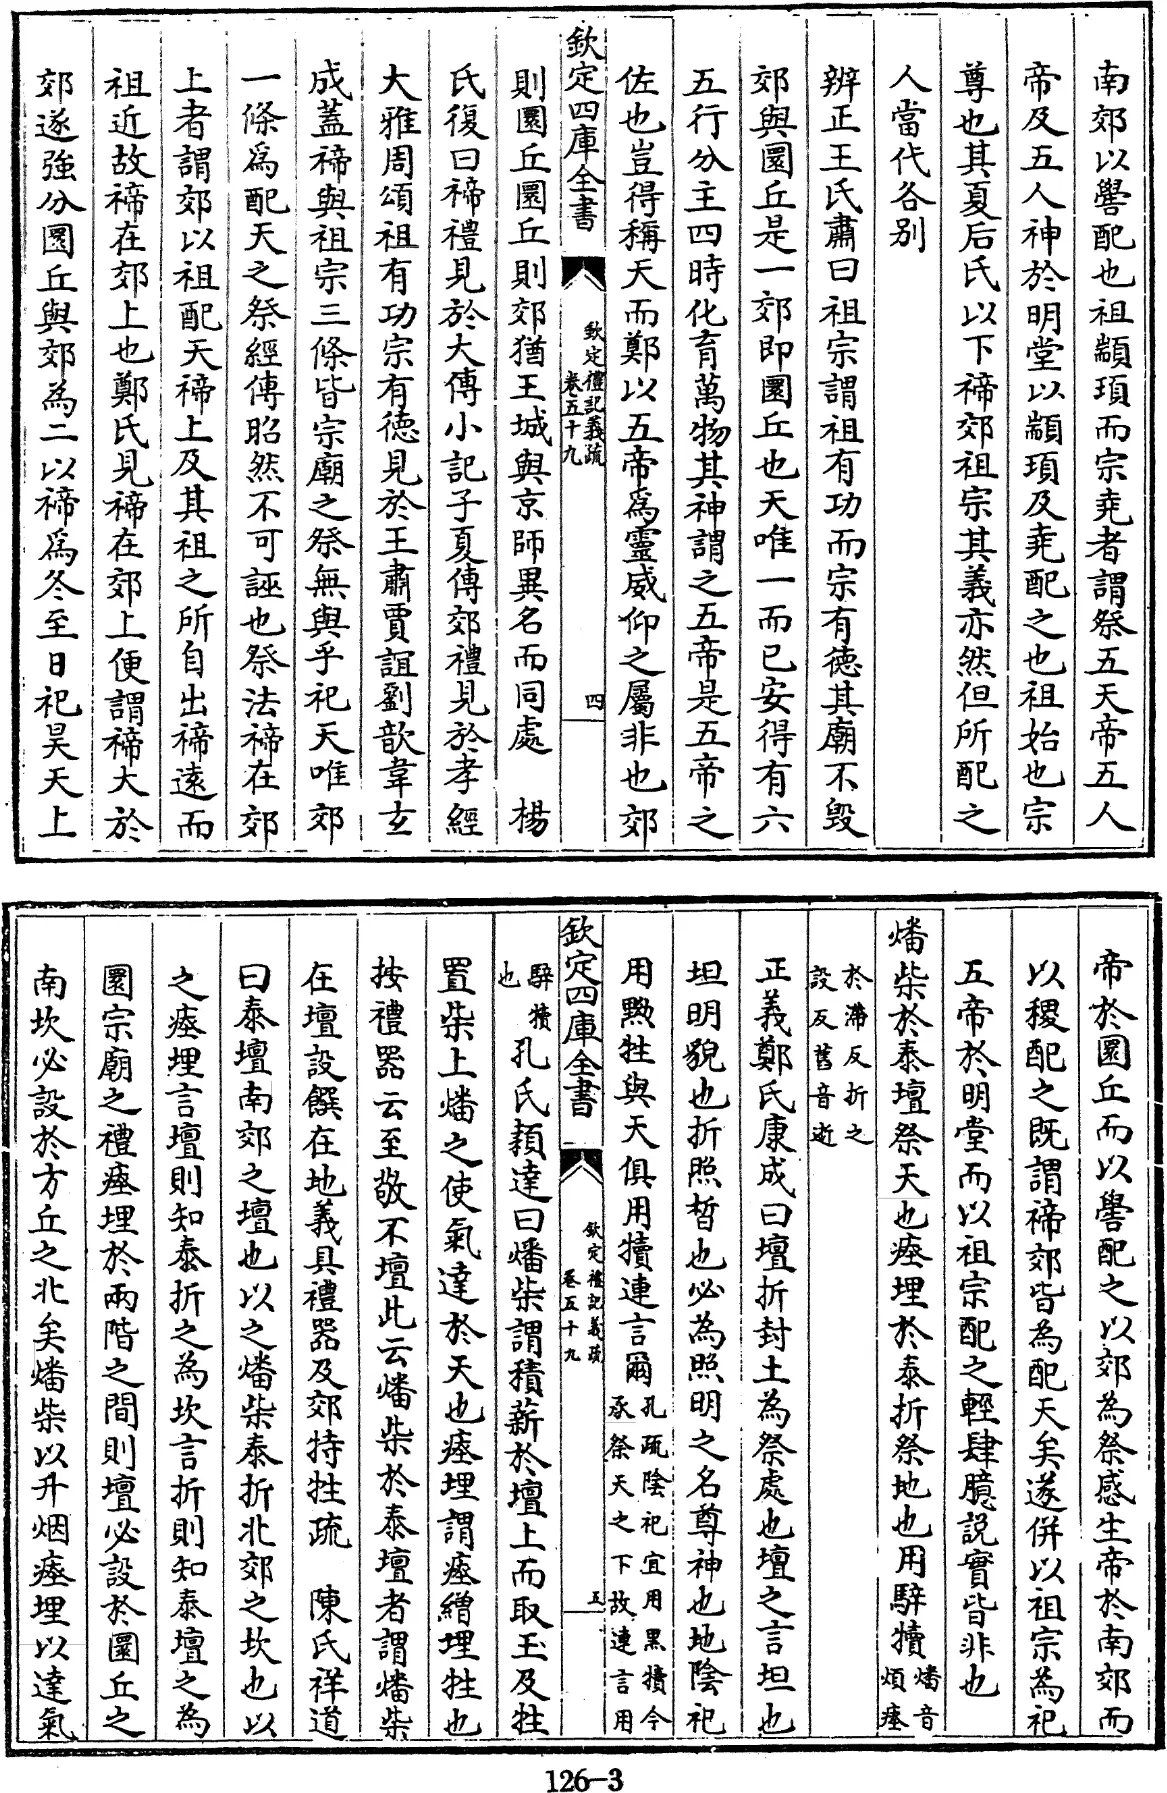 南郊以嚳配也祖顓頊而宗堯者謂祭五天帝五人
帝及五人神於明堂以顓頊及堯配之也祖始也宗
尊也其夏后氏以下禘郊祖宗其義亦然但所配之
人當代各別
辨正王氏肅曰祖宗謂祖有功而宗有德其廟不毀
郊與圜丘是一郊即圜丘也天唯一而已安得有六
五行分主四時化育萬物其神謂之五帝是五帝之
佐也豈得稱天而鄭以五帝爲靈威仰之屬非也郊
欽定四庫全書
欽定禮記義疏
卷五十九
四
則圜丘圜丘則郊猶王城與京師異名而同處 楊
氏復曰禘禮見於大傳小記子夏傳郊禮見於孝經
大雅周頌祖有功宗有德見於王肅賈誼劉歆韋玄
成蓋禘與祖宗三條皆宗廟之祭無與乎祀天唯郊
一條爲配天之祭經傳昭然不可誣也祭法禘在郊
上者謂郊以祖配天禘上及其祖之所自出禘遠而
祖近故禘在郊上也鄭氏見禘在郊上便謂禘大於
郊遂強分圜丘與郊為二以禘爲冬至日祀昊天上
帝於圜丘而以嚳配之以郊為祭感生帝於南郊而
以稷配之既謂禘郊皆為配天矣遂併以祖宗為祀
五帝於明堂而以祖宗配之輕肆臆説實皆非也
燔柴於泰壇祭天也瘞埋於泰折祭地也用騂犢
燔音
煩瘞
於滯反折之
設反舊音逝
正義鄭氏康成曰壇折封土為祭處也壇之言坦也
坦明貌也折照晳也必為照明之名尊神也地陰祀
用黝牲與天俱用犢連言爾
孔疏陰祀宜用黒犢今
承祭天之下故連言用
欽定四庫全書
欽定禮記義疏
卷五十九
五
騂犢
也
孔氏穎達曰燔柴謂積薪於壇上而取玉及牲
置柴上燔之使氣達於天也瘞埋謂瘞繒埋牲也
按禮器云至敬不壇此云燔柴於泰壇者謂燔柴
在壇設饌在地義具禮器及郊特牲疏 陳氏祥道
曰泰壇南郊之壇也以之燔柴泰折北郊之坎也以
之瘞埋言壇則知泰折之為坎言折則知泰壇之為
圜宗廟之禮瘞埋於兩階之間則壇必設於圜丘之
南坎必設於方丘之北矣燔柴以升烟瘞埋以達氣
126-3